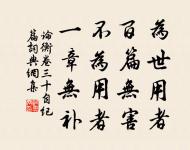 為世用者
百篇無害
不為用者
一章無补
論衡卷三十自紀
篇詞典網集